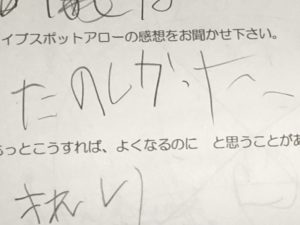 イブスポットアローの感想をお聞かせ下さい。
たのしかったへ
っとこうすれば、よくなるのに と思うことがあ
きれい